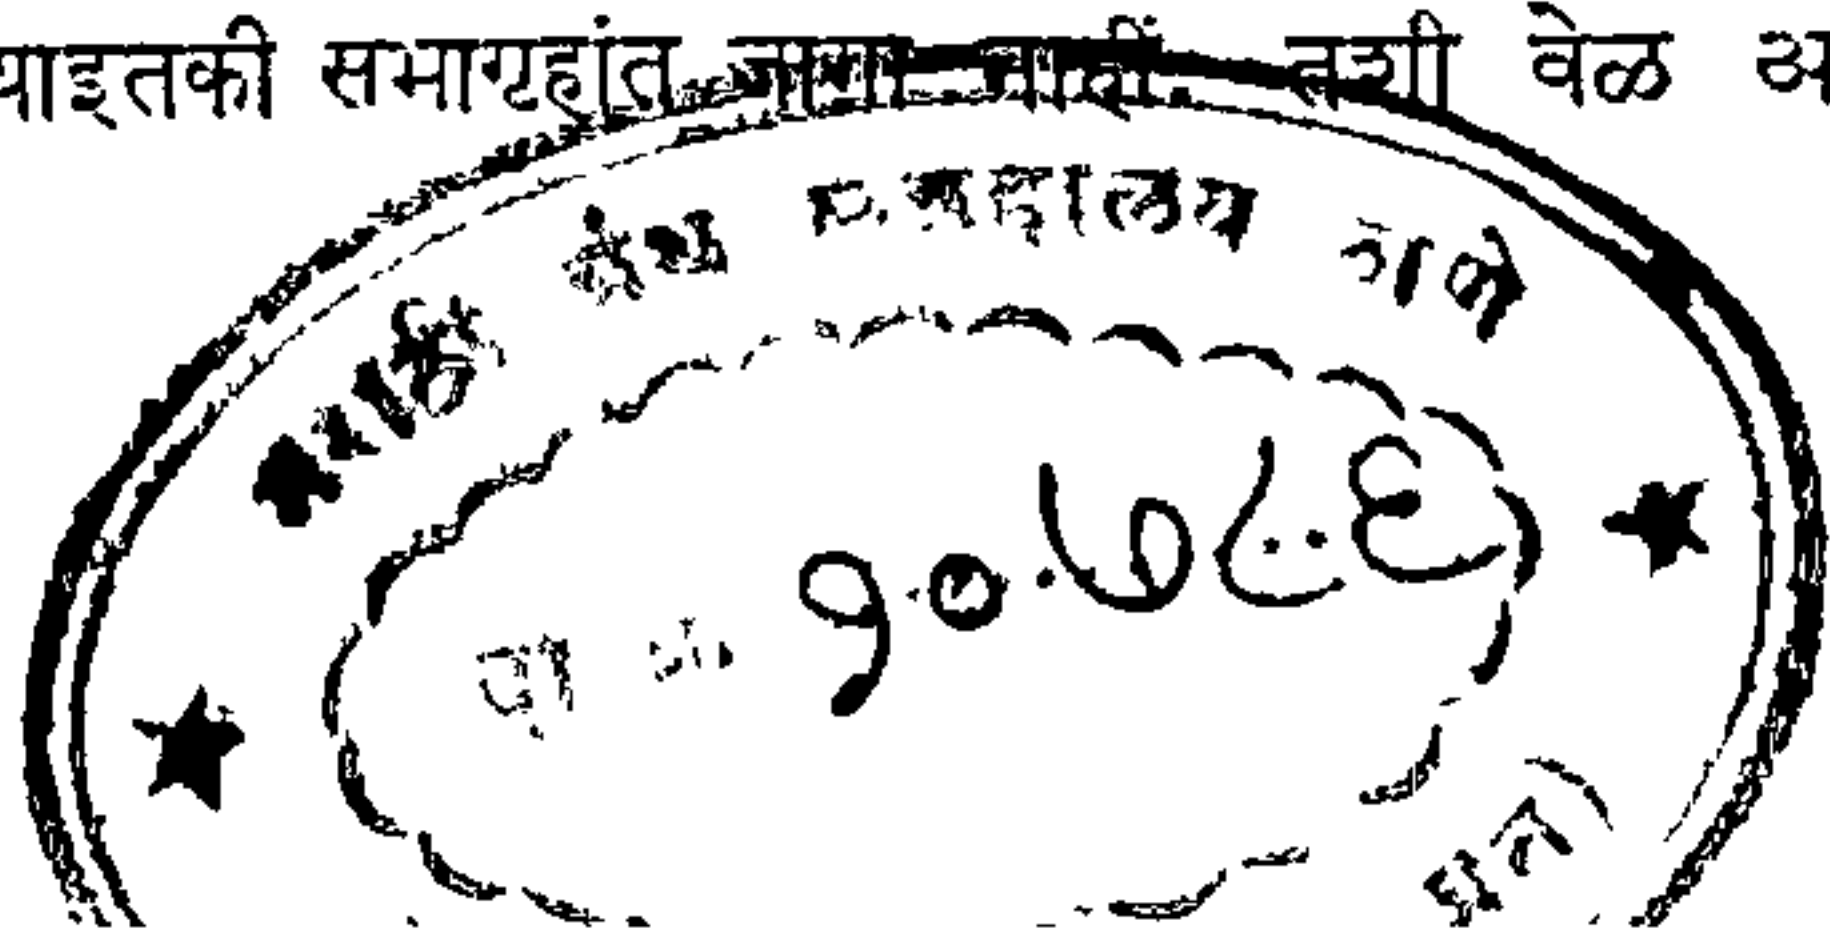 याइतकी सभागृहांत जागा नाहीं. तशी वेळ
मराठी ग्रंथ संग्रहालय ठाणे
१०७८६